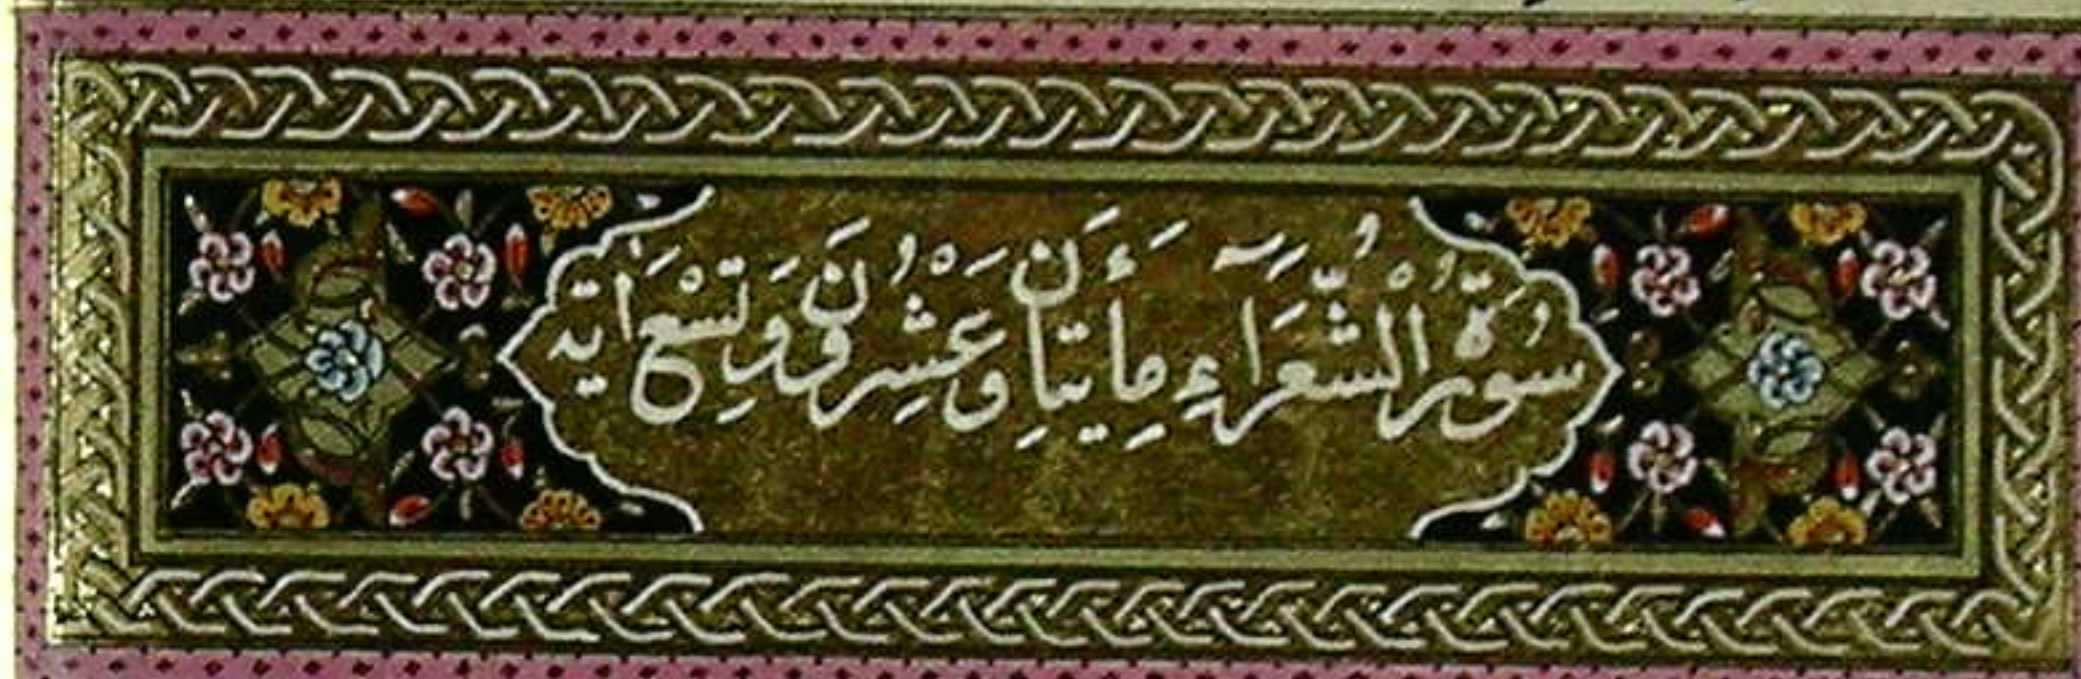 سُورَةُ الْشُّعَرَآءِ مِأَئَتَانِ وَعَشِرُوْنَ وَتِسْعَ اٰيَة